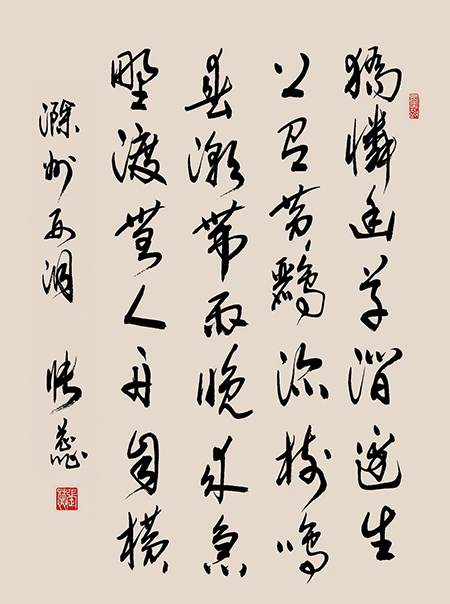 獨憐幽草澗邊生
上有黄鸝深樹鳴
春潮帶雨晚来急
野渡無人舟自横
滁州西澗 張蕊